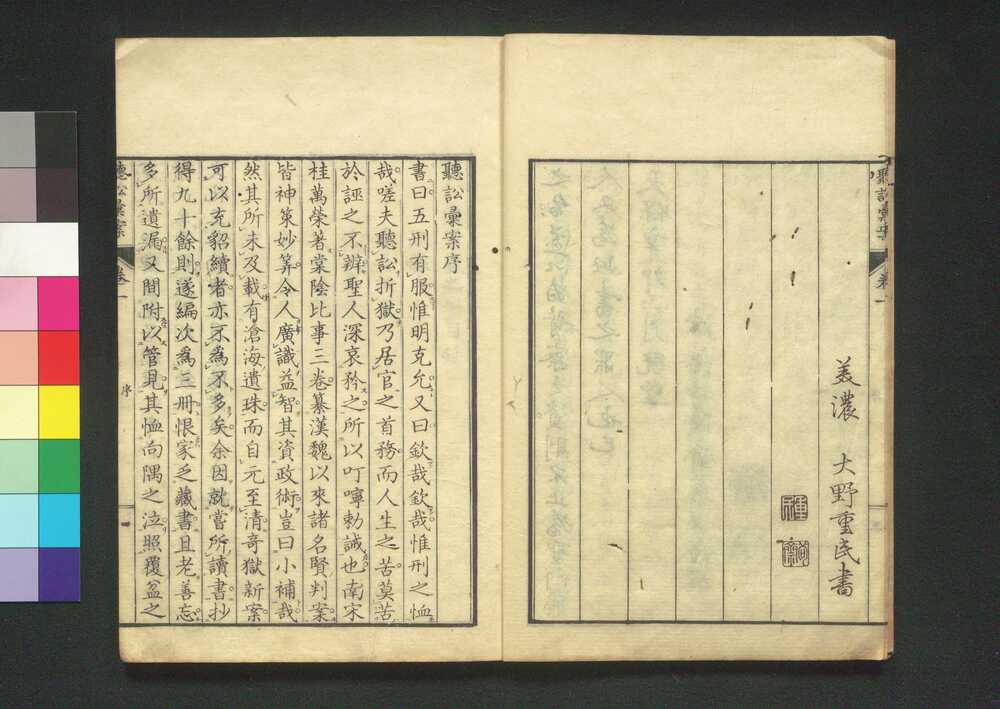 美濃 大野重民書
聽訟彙案序
書曰五刑有服惟明克允又曰欽哉欽哉惟刑之恤
哉嗟夫聽訟折獄乃居官之首務而人生之苦莫苦
於誣之不辨聖人深哀矜之所以叮嚀勅誡也南宋
桂萬榮著棠陰比事三卷纂漢魏以來諸名賢判案
皆神策妙筭令人廣識益智其資政術豈曰小補哉
然其所未及載有滄海遺珠而自元至清奇獄新案
可以克貂續者亦不為不多矣余因就嘗所讀書抄
得九十餘則遂編次為三冊恨家乏藏書且老善忘
多所遺漏又間附以管見其恤向隅之泣照覆盆之
序